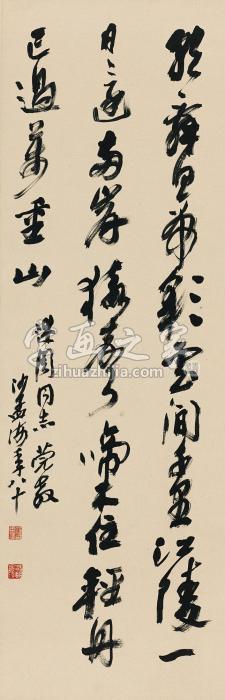 朝辞白帝彩雲間千里江陵一
日還兩岸猿聲啼不住輕舟
已過萬重山
同志莞教
沙孟海年八十
字画之家
www.zihuazhijia.com